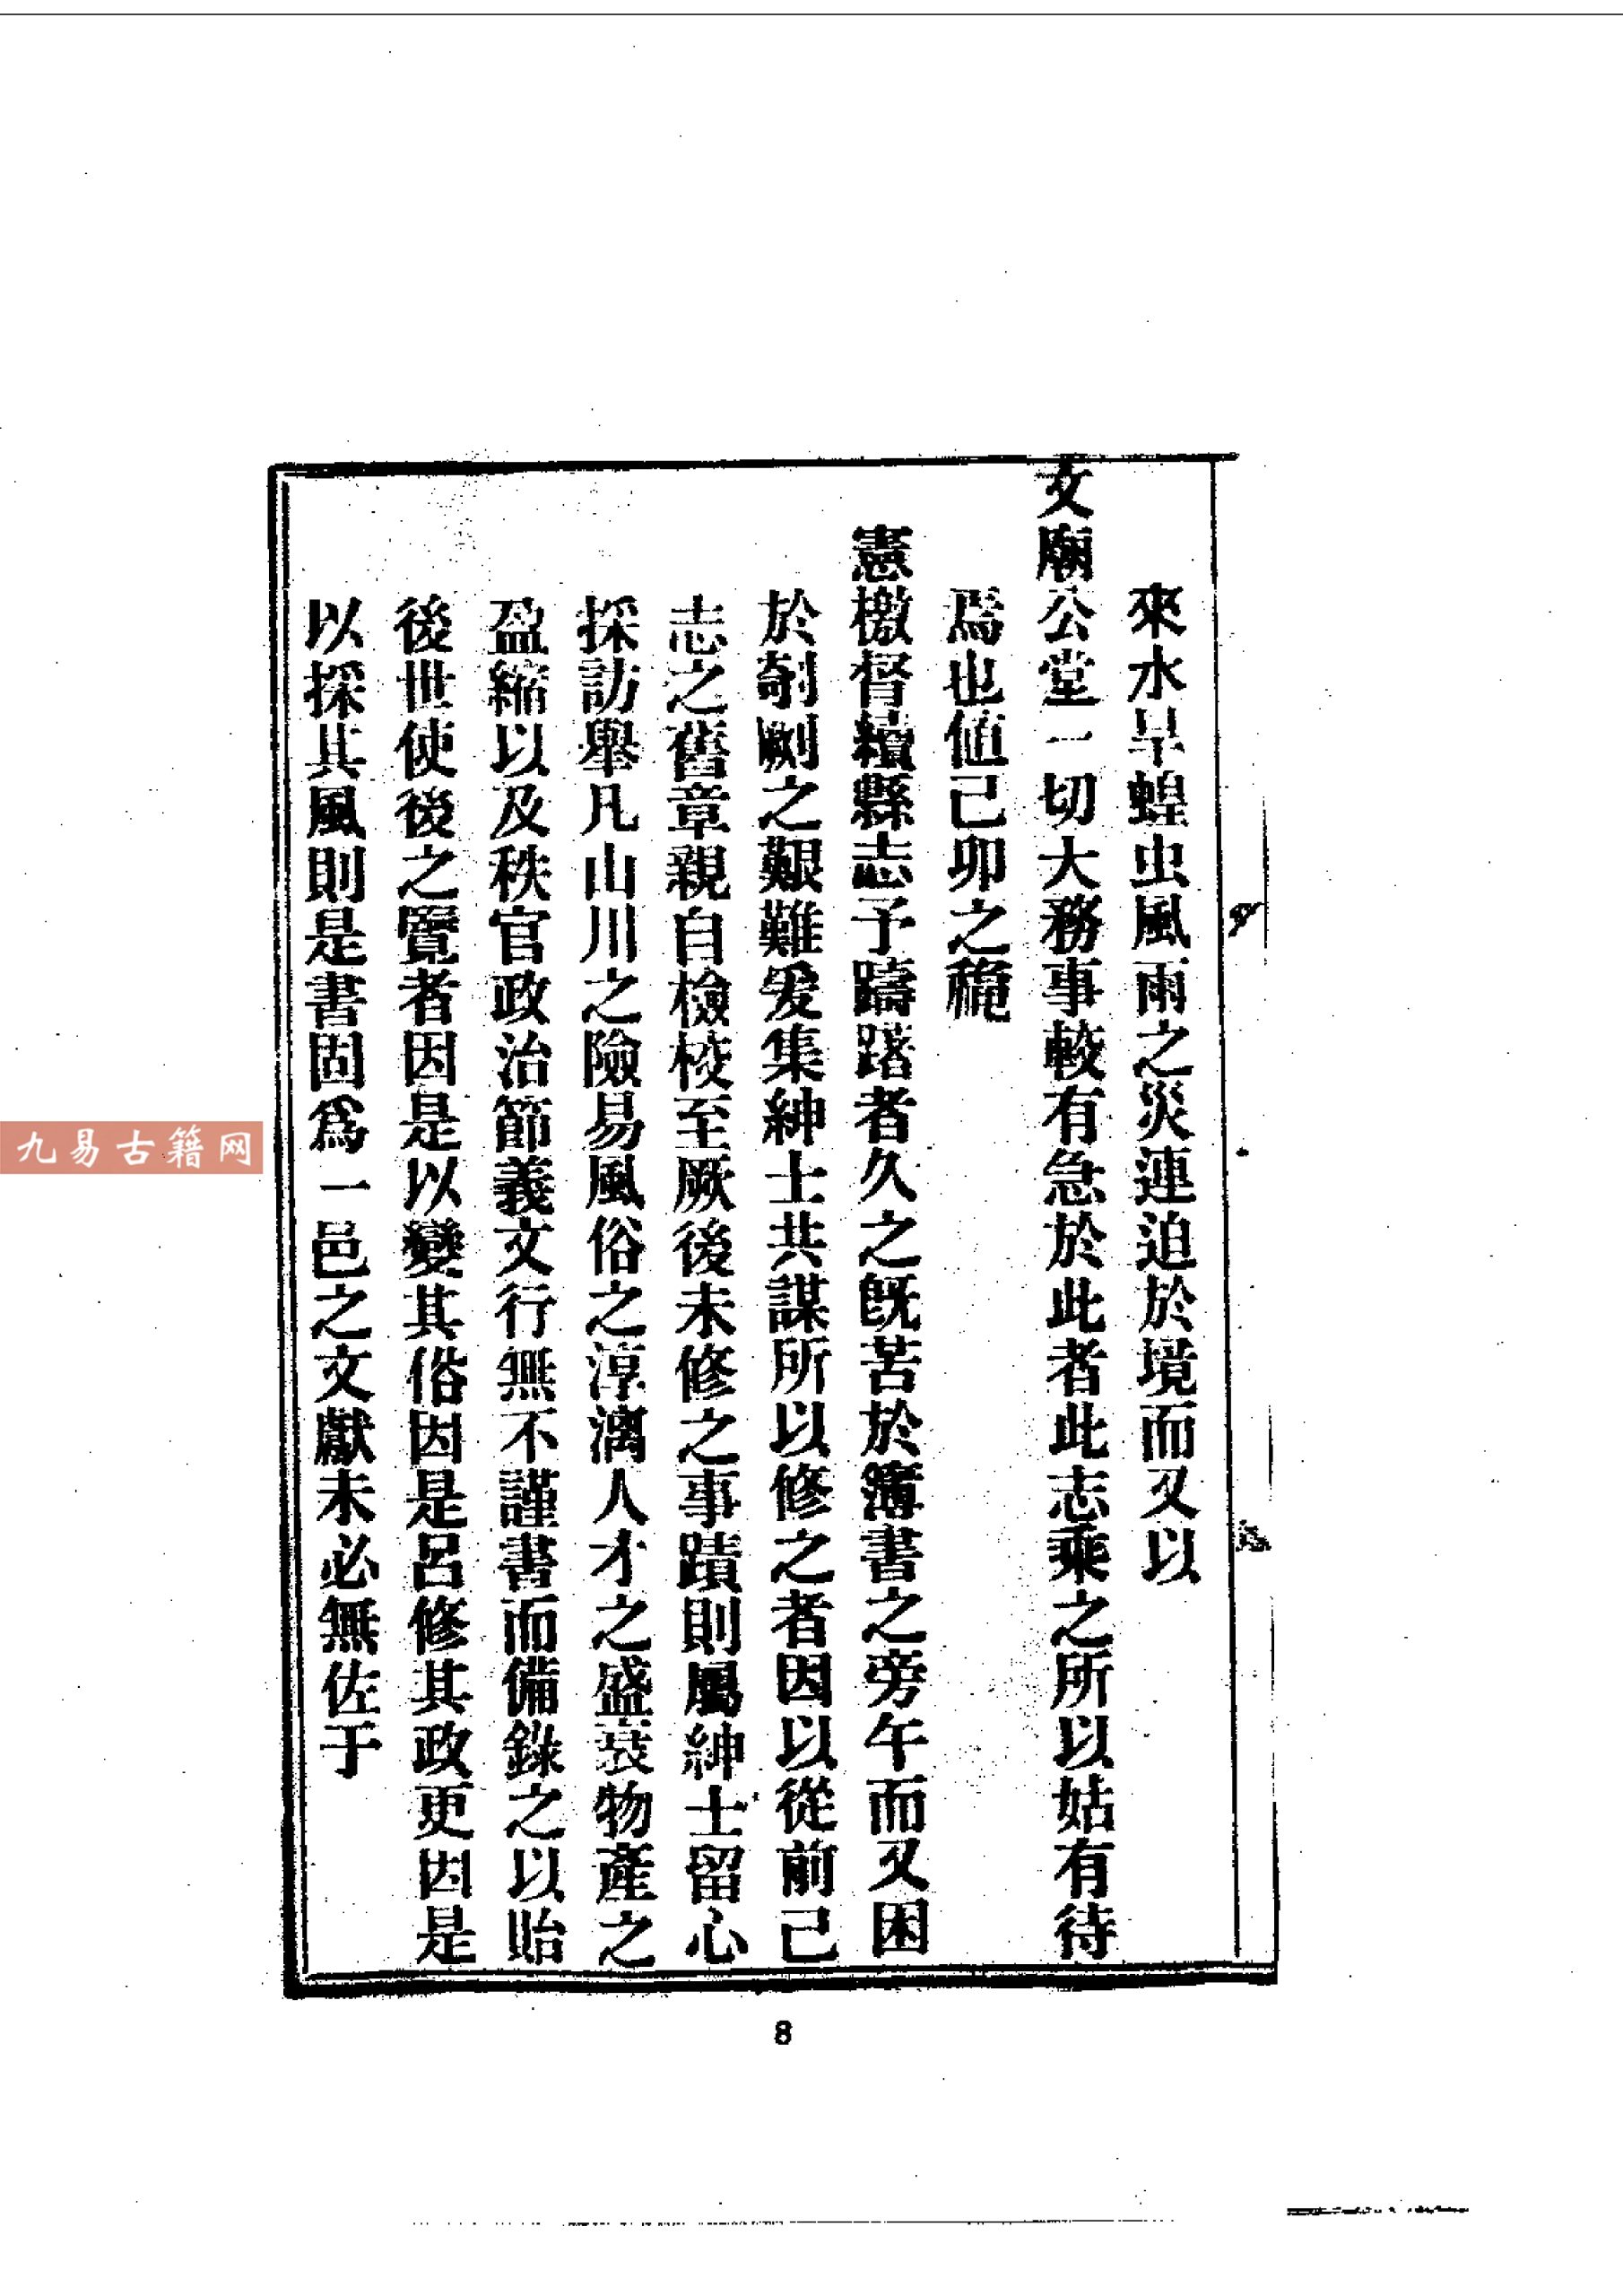 來水旱蝗虫風雨之災連迫於境而又以
文廟公堂一切大務事較有急於此者此志乘之所以姑有待
焉也値己卯之穐
憲檄督續縣志予躊躇者久之旣苦於簿書之旁午而又困
於剞劂之艱難爰集紳士共謀所以修之者因以從前己
志之舊章親自檢校至厥後未修之事蹟則屬紳士留心
採訪舉凡山川之險易風俗之淳漓人才之盛衰物產之
盈縮以及秩官政治節義文行無不謹書而備錄之以貽
後世使後之覽者因是以變其俗因是呂修其政更因是
以採其風則是書固爲一邑之文獻未必無佐于
九易古籍网
8